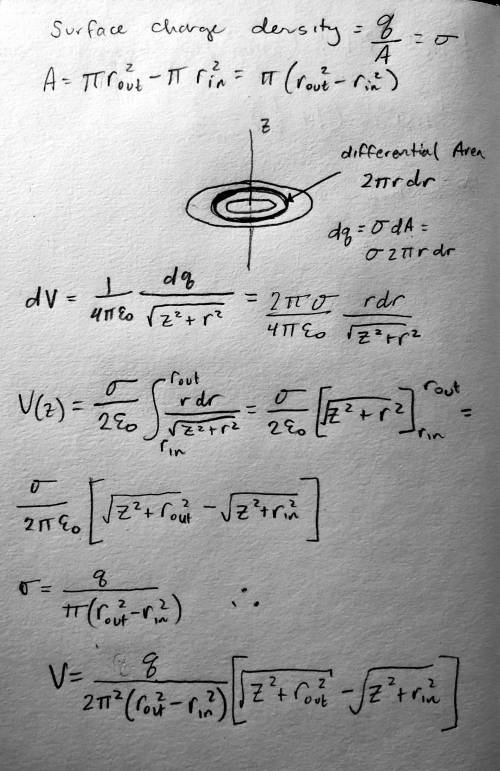 Surface charge density = q/A = σ
A = πr_out² − πr_in² = π(r_out² − r_in²)
z
differential Area
2πrdr
dq = σdA =
σ2πrdr
dV = 1/(4πε₀) dq/√(z² + r²) = 2πσ/(4πε₀) rdr/√(z² + r²)
V(z) = σ/(2ε₀) ∫_{r_in}^{r_out} r dr/√(z² + r²) = σ/(2ε₀) [√(z² + r²)]_{r_in}^{r_out} =
σ/(2πε₀) [√(z² + r_out²) − √(z² + r_in²)]
σ = q/(π(r_out² − r_in²)) ∴
V = q/(2π²(r_out² − r_in²)) [√(z² + r_out²) − √(z² + r_in²)]